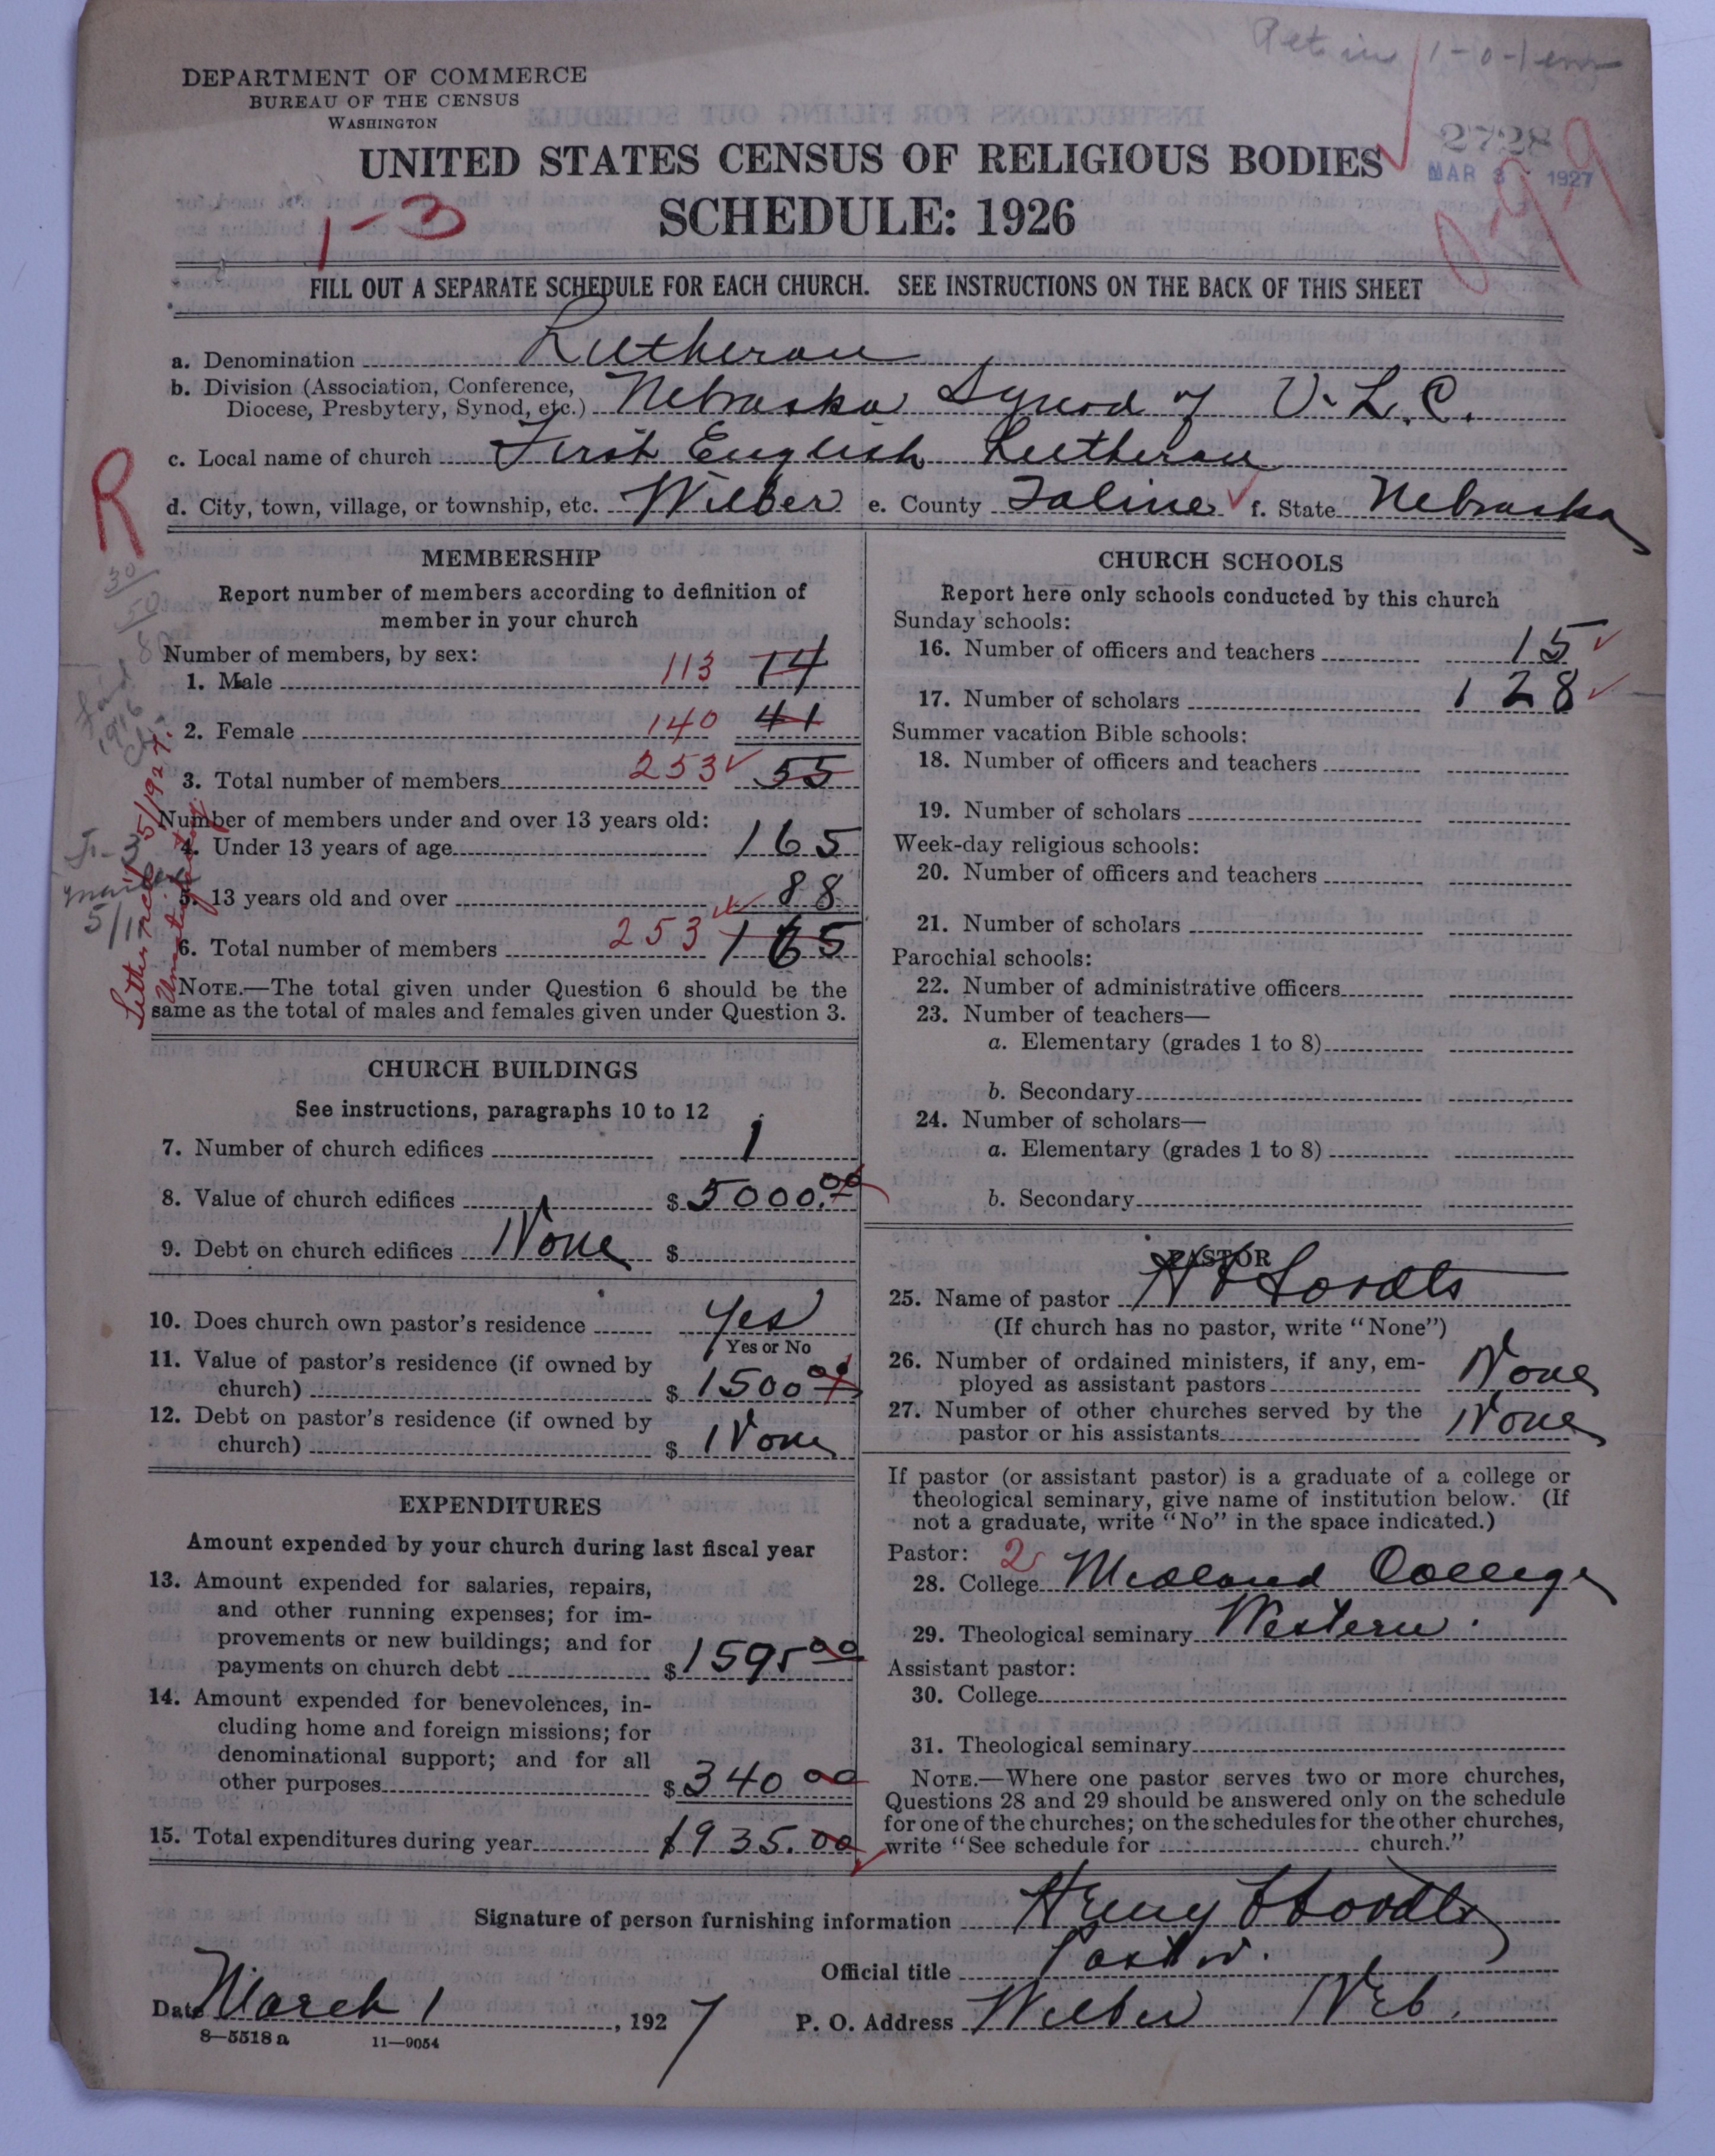 DEPARTMENT OF COMMERCE
BUREAU OF THE CENSUS
WASHINGTON
2728
MAR 3 1927
UNITED STATES CENSUS OF RELIGIOUS BODIES
1-3
SCHEDULE: 1926
FILL OUT A SEPARATE SCHEDULE FOR EACH CHURCH. SEE INSTRUCTIONS ON THE BACK OF THIS SHEET
a. Denomination Lutheran
b. Division (Association, Conference, Diocese, Presbytery, Synod, etc.) Nebraska Synod of U.L.C.
c. Local name of church First English Lutheran
d. City, town, village, or township, etc. Wilber e. County Saline f. State Nebraska
R
MEMBERSHIP
Report number of members according to definition of
member in your church
Number of members, by sex:
1. Male 113 14
2. Female 140 41
3. Total number of members 253 55
Number of members under and over 13 years old:
4. Under 13 years of age 165
5. 13 years old and over 88
6. Total number of members 253 165
NOTE.—The total given under Question 6 should be the
same as the total of males and females given under Question 3.
CHURCH BUILDINGS
See instructions, paragraphs 10 to 12
7. Number of church edifices 1
8. Value of church edifices $ 5000.00
9. Debt on church edifices None $
10. Does church own pastor's residence Yes
Yes or No
11. Value of pastor's residence (if owned by
church) $ 1500 00
12. Debt on pastor's residence (if owned by
church) $ None
EXPENDITURES
Amount expended by your church during last fiscal year
13. Amount expended for salaries, repairs,
and other running expenses; for im-
provements or new buildings; and for
payments on church debt $ 1595 00
14. Amount expended for benevolences, in-
cluding home and foreign missions; for
denominational support; and for all
other purposes $ 340 00
15. Total expenditures during year $ 1935.00
CHURCH SCHOOLS
Report here only schools conducted by this church
Sunday schools:
16. Number of officers and teachers 15
17. Number of scholars 128
Summer vacation Bible schools:
18. Number of officers and teachers
19. Number of scholars
Week-day religious schools:
20. Number of officers and teachers
21. Number of scholars
Parochial schools:
22. Number of administrative officers
23. Number of teachers—
a. Elementary (grades 1 to 8)
b. Secondary
24. Number of scholars—
a. Elementary (grades 1 to 8)
b. Secondary
PASTOR
25. Name of pastor
(If church has no pastor, write "None")
26. Number of ordained ministers, if any, em-
ployed as assistant pastors None
27. Number of other churches served by the
pastor or his assistants None
If pastor (or assistant pastor) is a graduate of a college or
theological seminary, give name of institution below. (If
not a graduate, write "No" in the space indicated.)
Pastor: 2
28. College Midland College
29. Theological seminary Western
Assistant pastor:
30. College
31. Theological seminary
NOTE.—Where one pastor serves two or more churches,
Questions 28 and 29 should be answered only on the schedule
for one of the churches; on the schedules for the other churches,
write "See schedule for church."
Signature of person furnishing information Henry
Official title Pastor.
Date March 1, 1927 P. O. Address Wilber Neb.
8—5518 a 11—9054